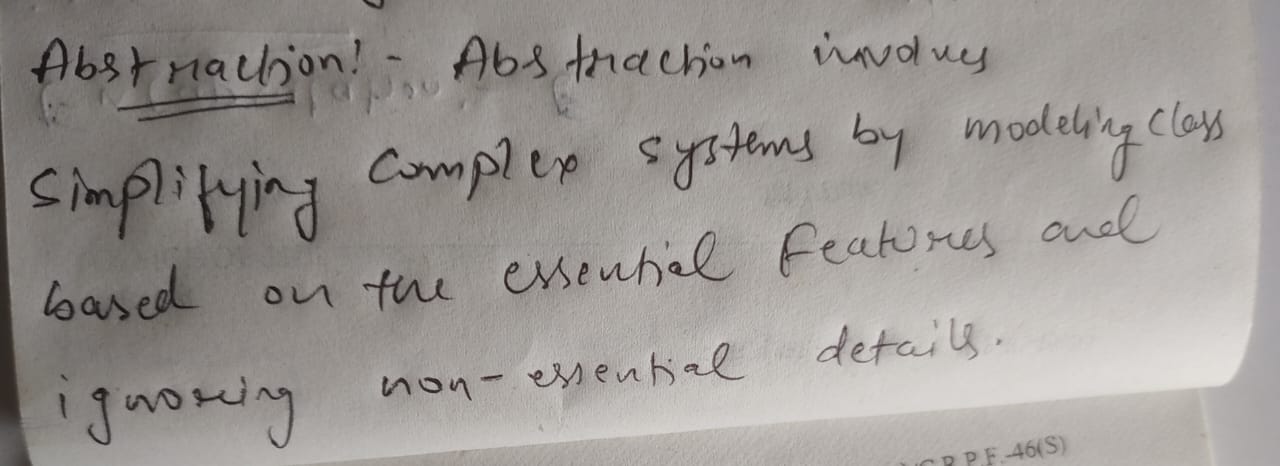 Abstraction:- Abstraction involves
Simplifying Complex systems by modeling class
based on the essential features and
ignoring non-essential details.
R.P.F.-46(S)